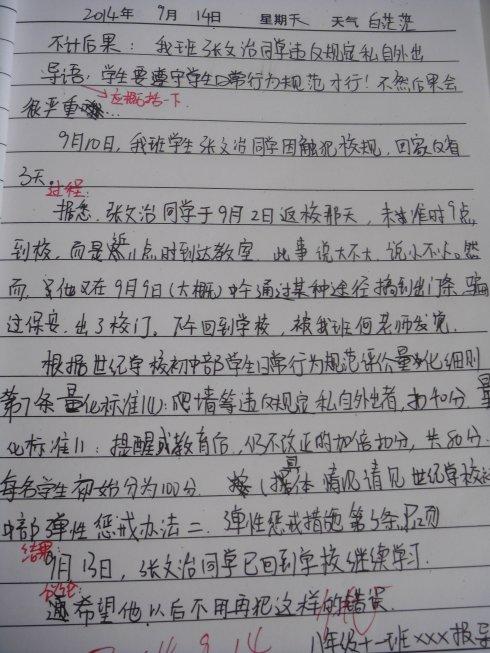 2014年 9月 14日 星期天 天气 白茫茫
不计后果：我班张文治同学违反规定私自外出
导语：学生要遵守学生日常行为规范才行！不然后果会
应概括一下
很严重...
9月10日，我班学生张文治同学因触犯校规，回家反省
3天。
过程：
据悉，张文治同学于9月2日返校那天，未准时9点
到校，而是近11点时到达教室，此事说大不大，说小不小。然
而，他又在9月9日（大概）中午通过某种途径搞到出门条，骗
过保安，出了校门。下午回到学校，被我班何老师发觉。
根据世纪学校初中部学生日常行为规范评价量化细则
第7条量化标准14：爬墙等违反规定私自外出者，扣40分 量
化标准11：提醒或教育后，仍不改正的加倍扣分，共80分
每名学生初始分为100分。（具体情况请见世纪学校初
中部弹性惩戒办法二. 弹性惩戒措施第5条
结果：
9月13日，张文治同学已回到学校继续学习.
结论：
希望他以后不用再犯这样的错误.
八年级十一班xxx报导